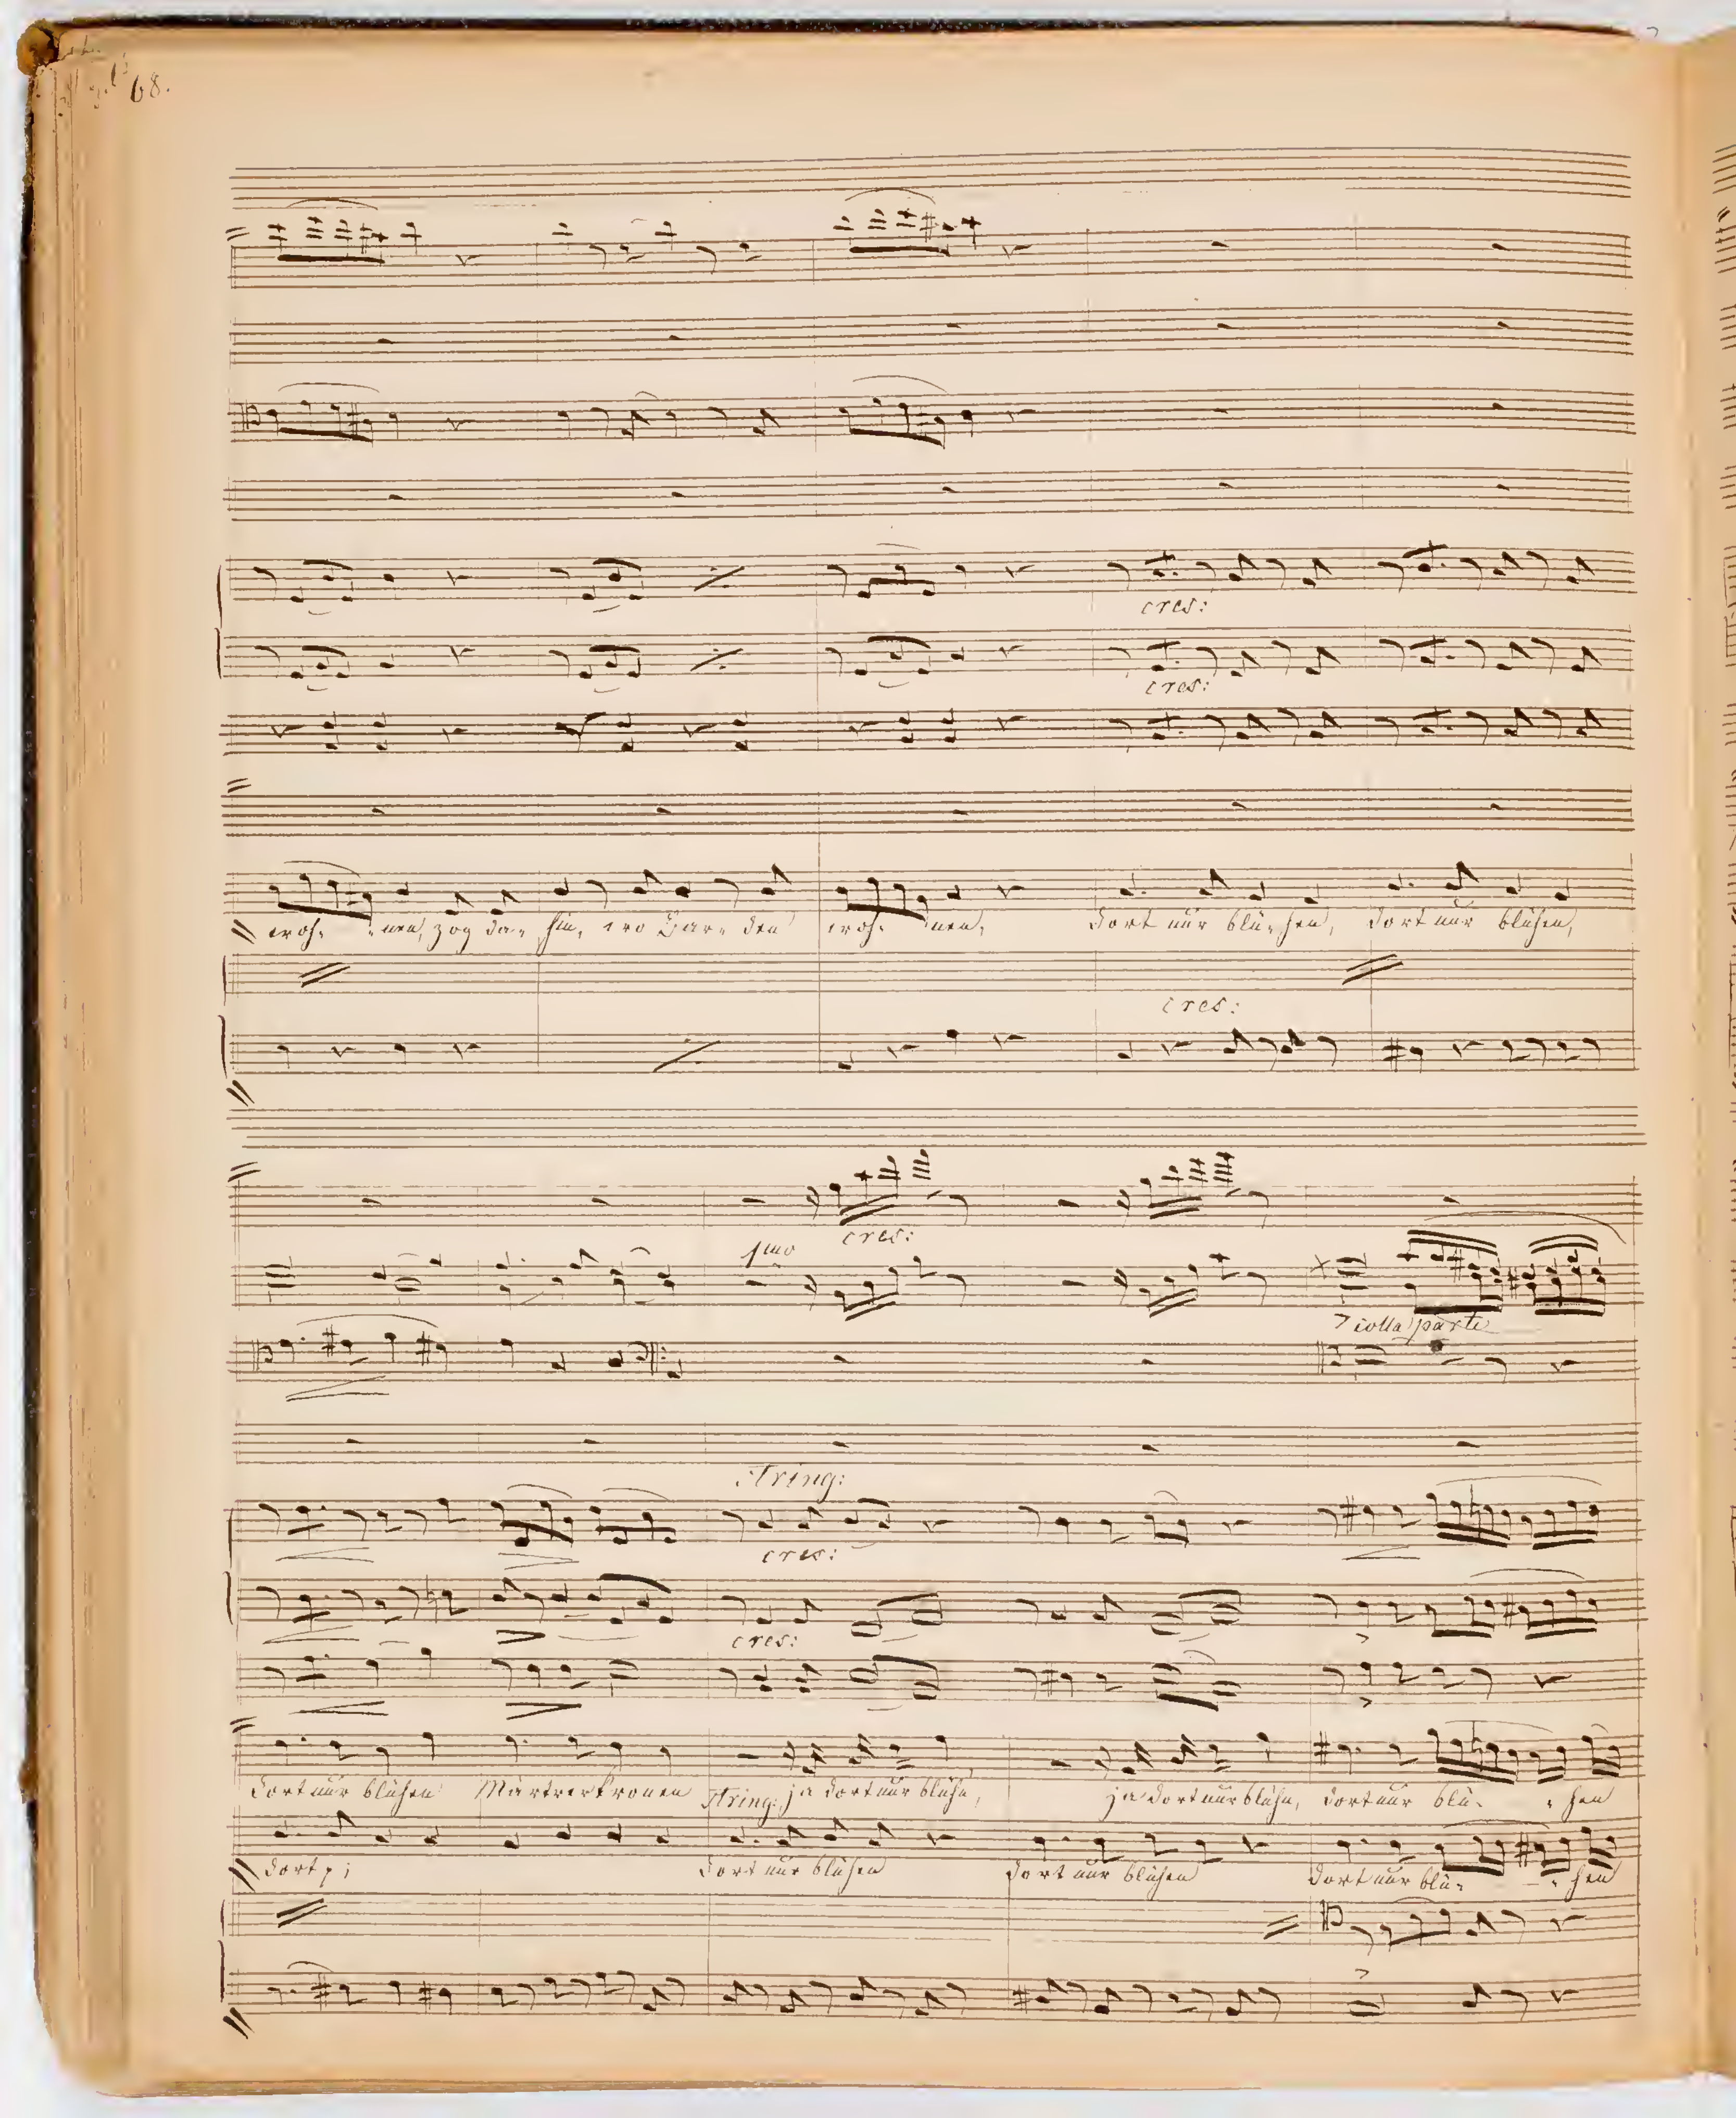 68.
cres:
cres:
woh- nen, zog da- hin, wo Par- den woh- nen, dort nur blü- hen, dort nur blühen,
cres:
cres:
1mo
colla parte
String:
cres:
cres:
dort nur blühen Märtrerkronen String: ja dort nur blühn, ja dort nur blühn, dort nur blü- hen
dort dort nur blühen dort nur blühen dort nur blü- hen